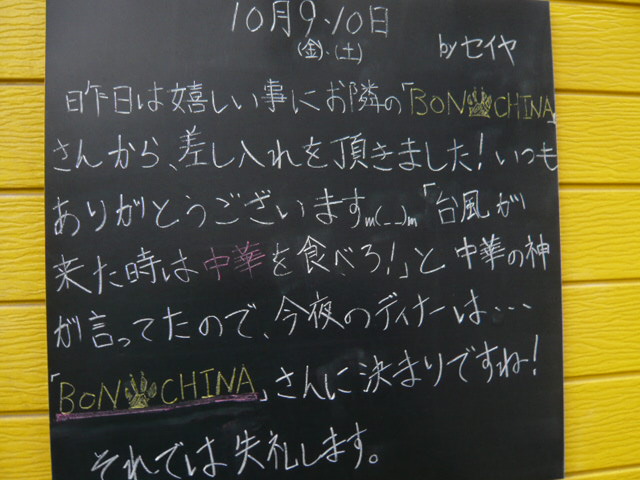 10月9.10日
(金).(土) byセイヤ
昨日は嬉しい事にお隣の「BON CHINA」
さんから、差し入れを頂きました!いつも
ありがとうございますm(__)m「台風が
来た時は中華を食べろ!」と中華の神
が言ってたので、今夜のディナーは…
「BON CHINA」さんに決まりですね!
それでは失礼します。